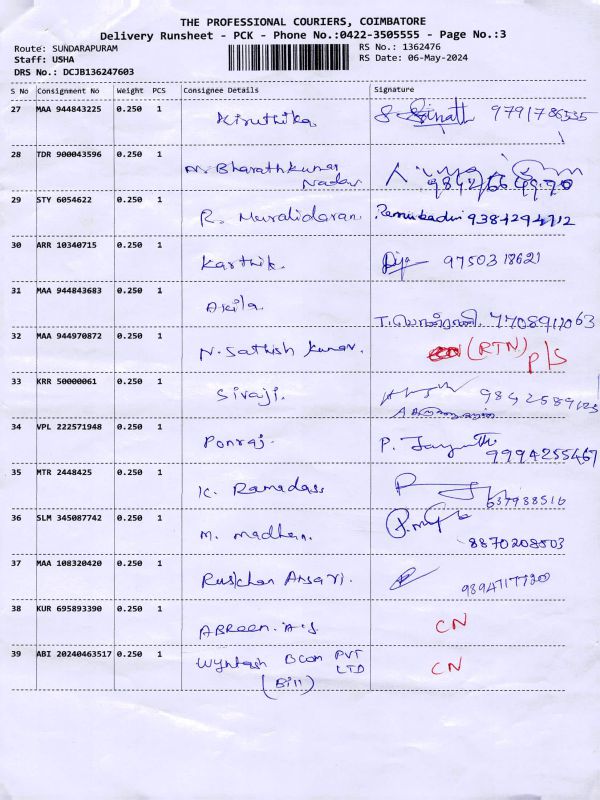 THE PROFESSIONAL COURIERS, COIMBATORE
Delivery Runsheet - PCK - Phone No.:0422-3505555 - Page No.:3
Route: SUNDARAPURAM RS No.: 1362476
Staff: USHA RS Date: 06-May-2024
DRS No.: DCJB136247603
S No Consignment No Weight PCS Consignee Details Signature
27 MAA 944843225 0.250 1 Kiruthika 9791786535
28 TDR 900043596 0.250 1 M. Bharathkumar
Nadar
29 STY 6054622 0.250 1 R. Muralidaran 9384294712
30 ARR 10340715 0.250 1 Karthik. 9750318621
31 MAA 944843683 0.250 1 Akila.
7708912063
32 MAA 944970872 0.250 1 N. Sathish Kumar. (RTN) P/S
33 KRR 50000061 0.250 1 Sivaji. 9842589123
34 VPL 222571948 0.250 1 Ponraj. P.
9994255467
35 MTR 2448425 0.250 1 K. Ramadass
637988516
36 SLM 345087742 0.250 1 M. Madhan.
8870208503
37 MAA 108320420 0.250 1 Ansari.
38 KUR 695893390 0.250 1 CN
39 ABI 20240463517 0.250 1 Bcom PVT
LTD CN
(Bill)